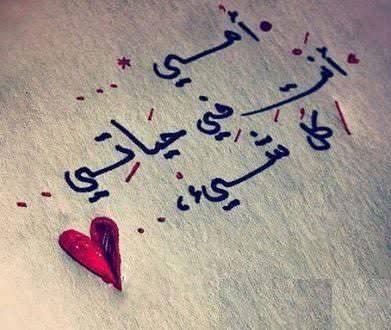 أنت أمي
كل شيء في حياتي